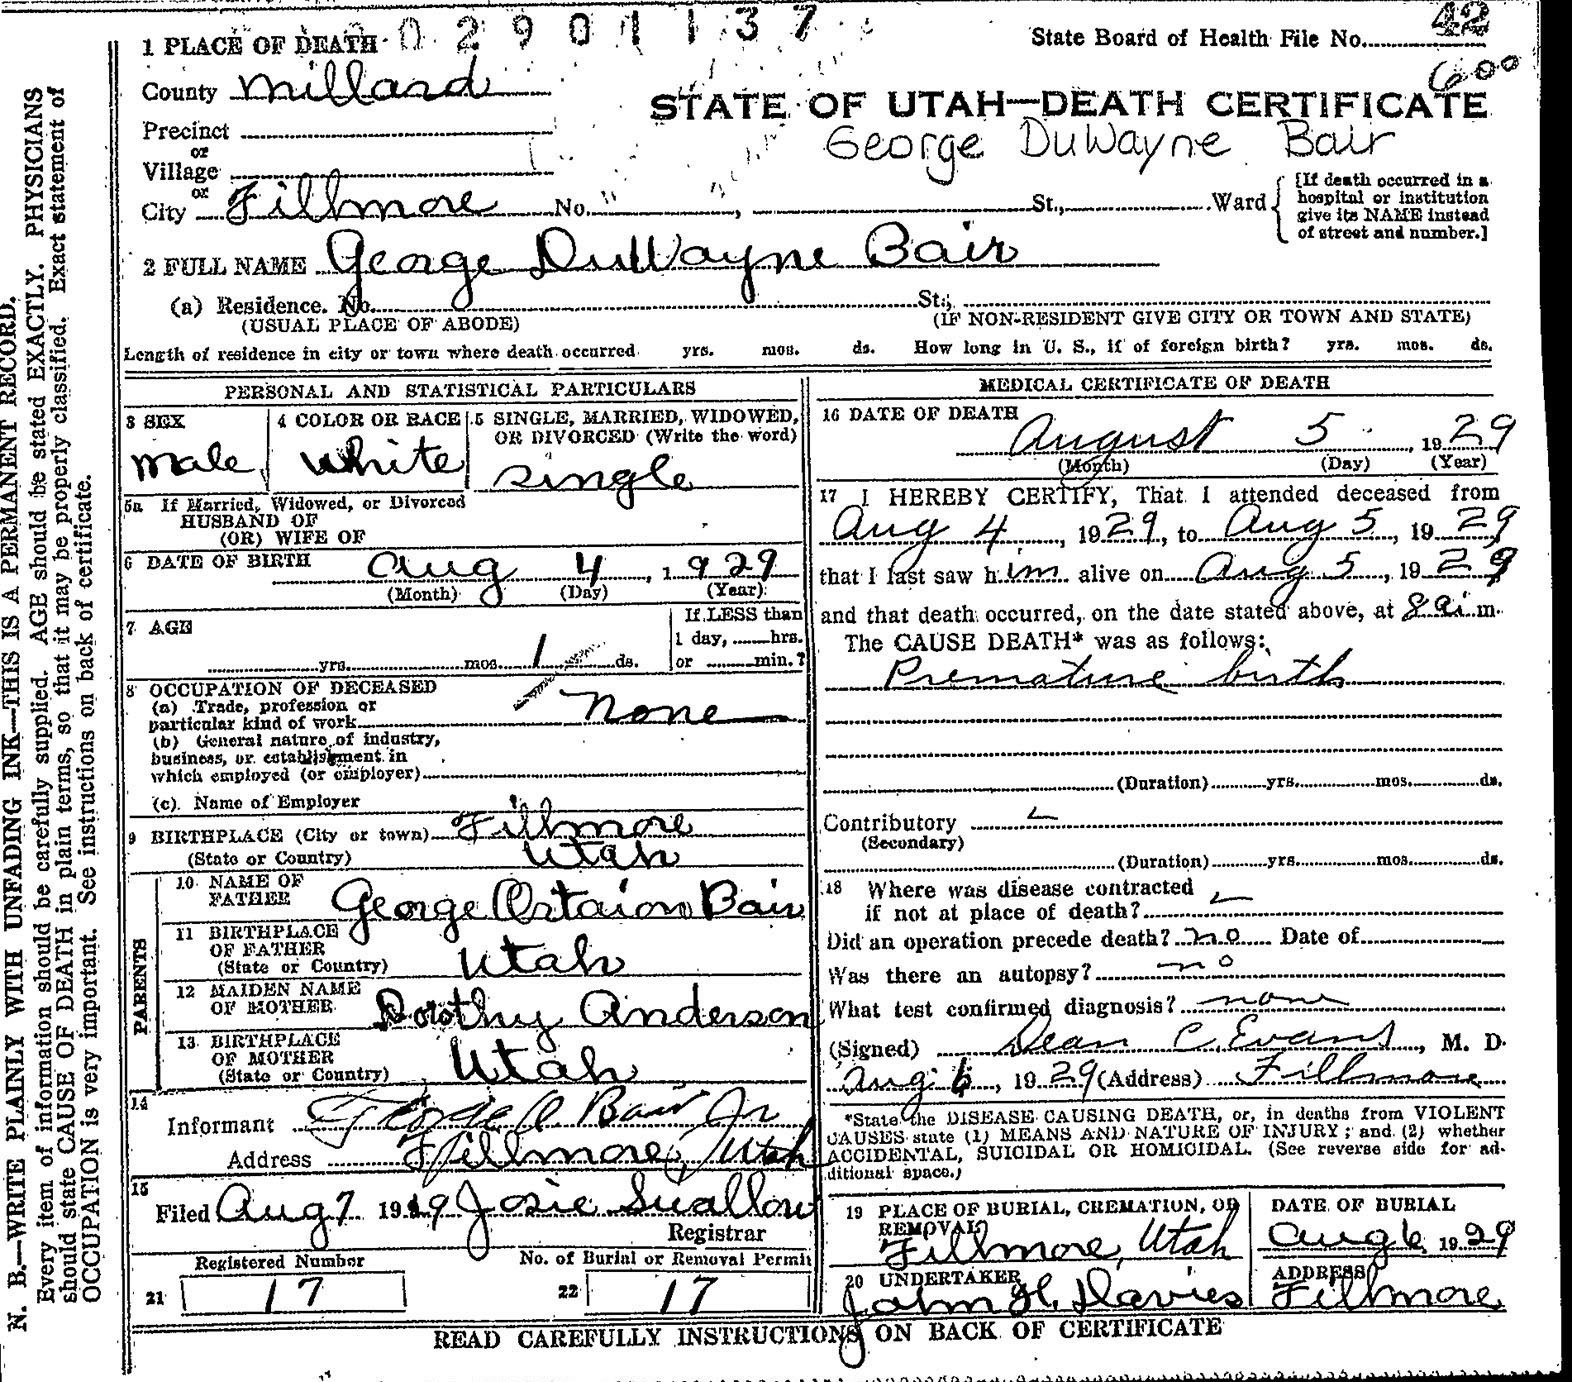 02901137
1 PLACE OF DEATH
State Board of Health File No. 42
600
County Millard
STATE OF UTAH—DEATH CERTIFICATE
Precinct
George DuWayne Bair
or
Village
or
City Fillmore No. , St., Ward
[If death occurred in a
hospital or institution
give its NAME instead
of street and number.]
2 FULL NAME George DuWayne Bair
(a) Residence. No. St.,
(USUAL PLACE OF ABODE) (IF NON-RESIDENT GIVE CITY OR TOWN AND STATE)
Length of residence in city or town where death occurred yrs. mos. ds. How long in U. S., if of foreign birth? yrs. mos. ds.
PERSONAL AND STATISTICAL PARTICULARS
3 SEX
male
4 COLOR OR RACE
White
5 SINGLE, MARRIED, WIDOWED,
OR DIVORCED (Write the word)
single
5a If Married, Widowed, or Divorced
HUSBAND OF
(OR) WIFE OF
6 DATE OF BIRTH Aug 4, 1929
(Month) (Day) (Year)
7 AGE
yrs. mos. 1 ds.
If LESS than
1 day, hrs.
or min.?
8 OCCUPATION OF DECEASED
(a) Trade, profession or
particular kind of work none
(b) General nature of industry,
business, or establishment in
which employed (or employer)
(c) Name of Employer
9 BIRTHPLACE (City or town) Fillmore
(State or Country) Utah
PARENTS
10 NAME OF
FATHER George Bair
11 BIRTHPLACE
OF FATHER
(State or Country) Utah
12 MAIDEN NAME
OF MOTHER Dorothy Anderson
13 BIRTHPLACE
OF MOTHER
(State or Country) Utah
14
Informant George O. Bair Jr
Address Fillmore, Utah
15
Filed Aug 7 19 Josie Swallow
Registrar
Registered Number No. of Burial or Removal Permit
21 17 22 17
MEDICAL CERTIFICATE OF DEATH
16 DATE OF DEATH
August 5, 1929
(Month) (Day) (Year)
17 I HEREBY CERTIFY, That I attended deceased from
Aug 4, 1929, to Aug 5, 1929
that I last saw him alive on Aug 5, 1929
and that death occurred, on the date stated above, at 8 a.m.
The CAUSE DEATH* was as follows:
Premature birth
(Duration) yrs. mos. ds.
Contributory
(Secondary)
(Duration) yrs. mos. ds.
18 Where was disease contracted
if not at place of death?
Did an operation precede death? no Date of
Was there an autopsy? no
What test confirmed diagnosis? none
(Signed) Dean C. Evans, M. D.
Aug 6, 1929 (Address) Fillmore
*State the DISEASE CAUSING DEATH, or, in deaths from VIOLENT
CAUSES state (1) MEANS AND NATURE OF INJURY; and (2) whether
ACCIDENTAL, SUICIDAL OR HOMICIDAL. (See reverse side for ad-
ditional space.)
19 PLACE OF BURIAL, CREMATION, OR
REMOVAL
Fillmore, Utah
DATE OF BURIAL
Aug 6 1929
20 UNDERTAKER
John H. Davies
ADDRESS
Fillmore
READ CAREFULLY INSTRUCTIONS ON BACK OF CERTIFICATE
N. B.—WRITE PLAINLY WITH UNFADING INK—THIS IS A PERMANENT RECORD.
Every item of information should be carefully supplied. AGE should be stated EXACTLY. PHYSICIANS
should state CAUSE OF DEATH in plain terms, so that it may be properly classified. Exact statement of
OCCUPATION is very important. See instructions on back of certificate.